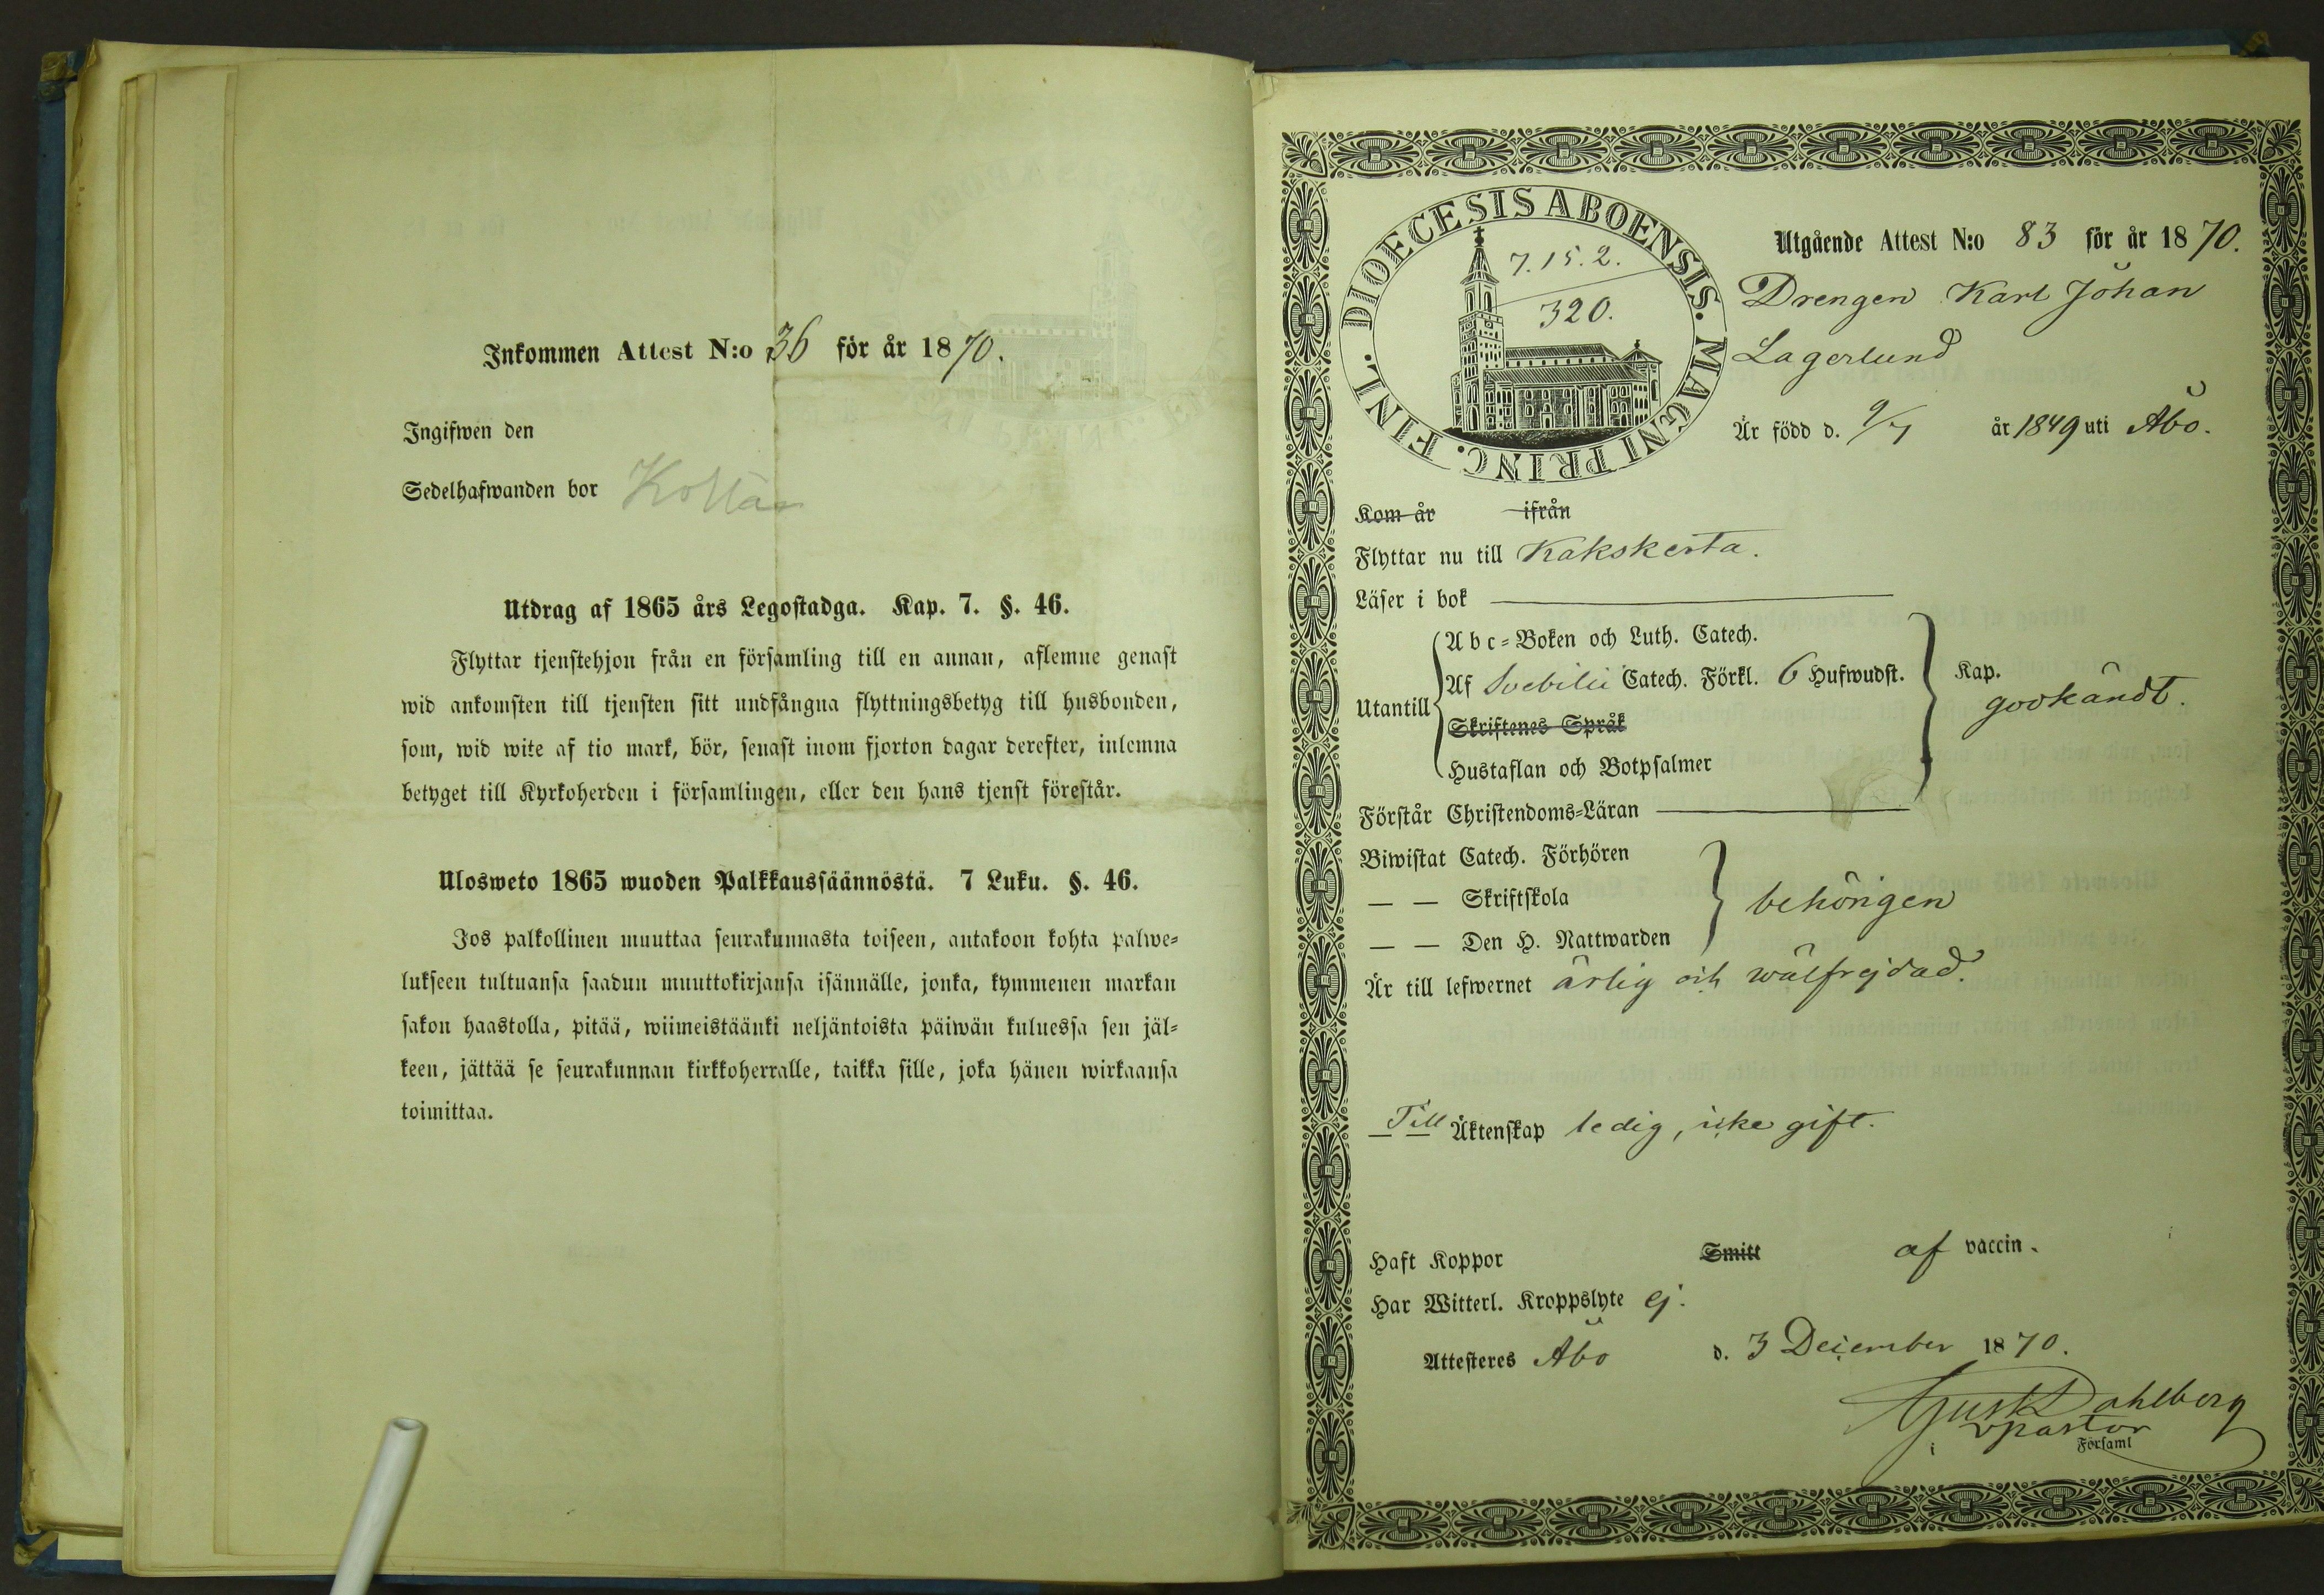 Inkommen Attest N:o 36 för år 1870.
Ingifwen den
Sedelhafwanden bor
Utdrag af 1865 års Legostadga. Kap. 7. §. 46.
Flyttar tjenstehjon från en församling till en annan, aflemne genast
wid ankomsten till tjensten sitt undfångna flyttningsbetyg till husbonden,
som, wid wite af tio mark, bör, senast inom fjorton dagar derefter, inlemna
betyget till Kyrkoherden i församlingen, eller den hans tjenst förestår.
Ulosweto 1865 wuoden Palkkaussäännöstä. 7 Luku. §. 46.
Jos palkollinen muuttaa seurakunnasta toiseen, antakoon kohta palwe-
lukseen tultuansa saadun muuttokirjansa isännälle, jonka, kymmenen markan
sakon haastolla, pitää, wiimeistäänki neljäntoista päiwän kuluessa sen jäl-
keen, jättää se seurakunnan kirkkoherralle, taikka sille, joka hänen wirkaansa
toimittaa.
DIOECESIS ABOENSIS. MAGNI PRINC. FINL.
7.15.2.
320.
Utgående Attest N:o 83 för år 1870.
Drengen Karl Johan
Lagerlund
Är född d. 9/7 år 1849 uti Åbo.
Kom år ifrån
Flyttar nu till Kakskerta.
Läser i bok
Abc-Boken och Luth. Catech.
Utantill Af Svebilii Catech. Förkl. 6 Hufwudst. Kap. godkändt.
Skriftenes Språk
Hustaflan och Botpsalmer
Förstår Christendoms-Läran
Biwistat Catech. Förhören
— — Skriftskola behörigen
— — Den H. Nattwarden
Är till lefwernet ärlig och wälfrejdad.
— Till — Äktenskap ledig, icke gift.
Haft Koppor Smitt af vaccin.
Har Witterl. Kroppslyte ej.
Attesteres Åbo d. 3 December 1870.
Gust Dahlberg
vpastor
i Församl